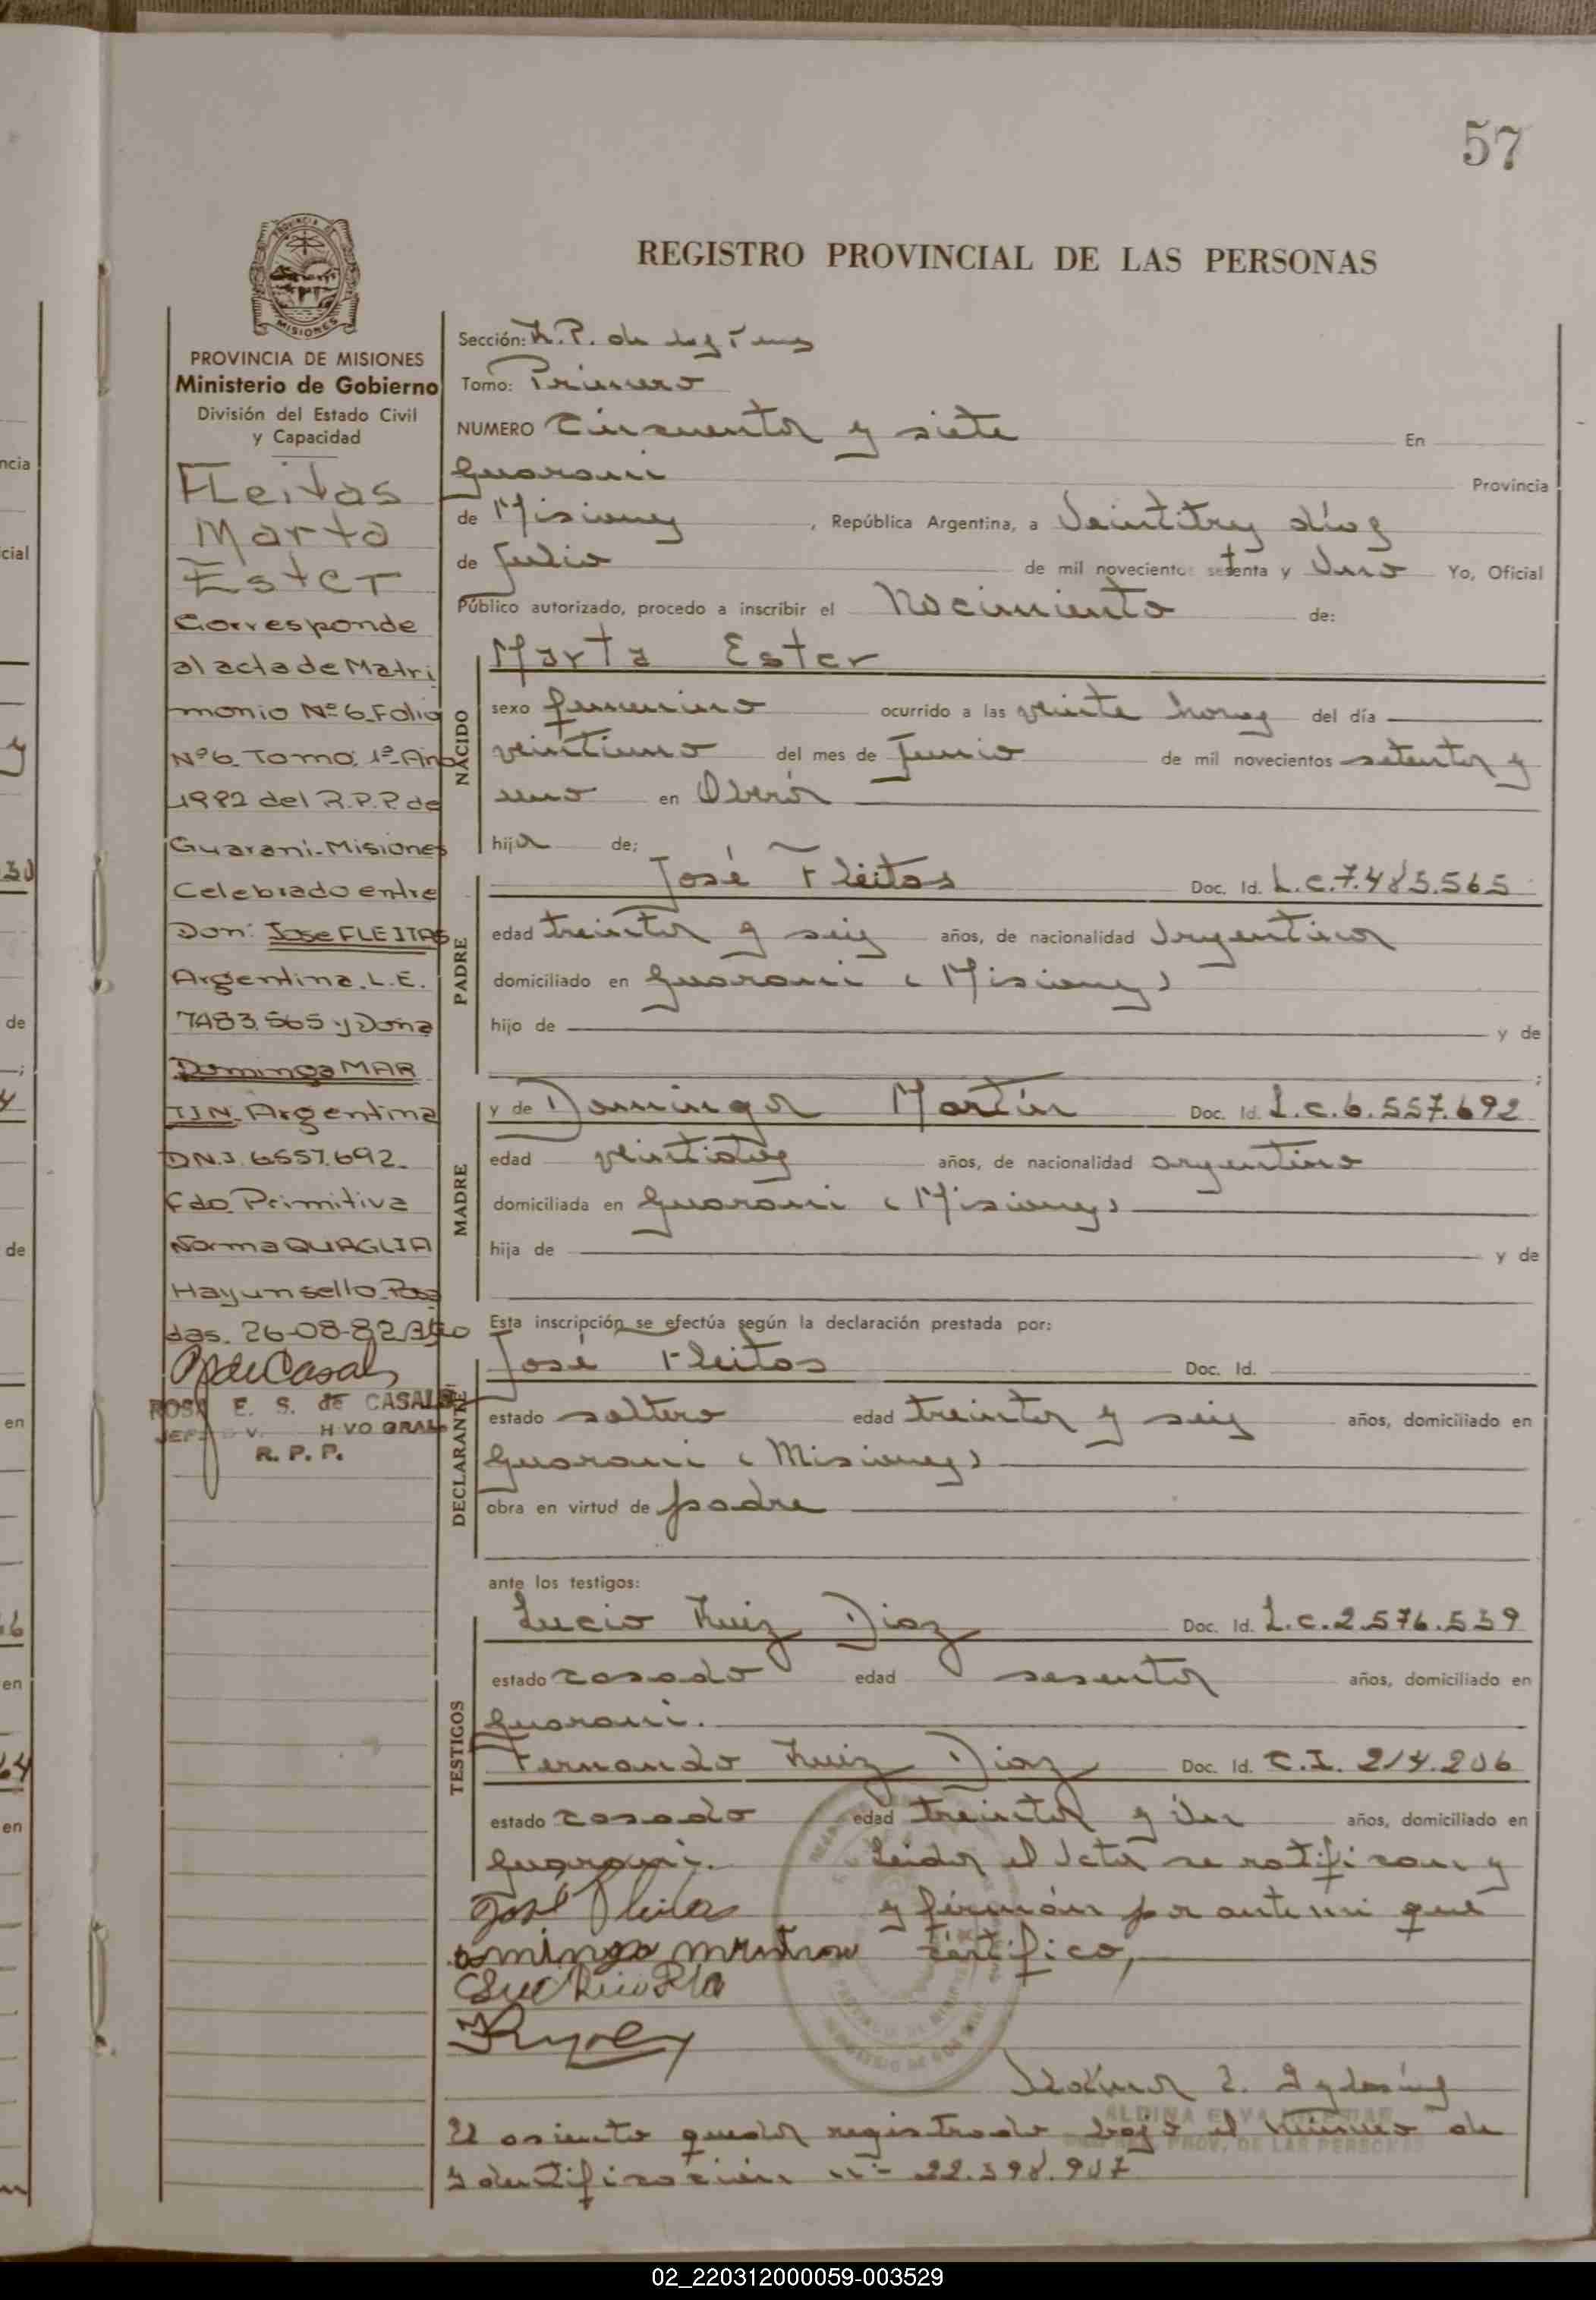 57
REGISTRO PROVINCIAL DE LAS PERSONAS
PROVINCIA DE MISIONES
Ministerio de Gobierno
División del Estado Civil
y Capacidad
FLeitas
Marta
Ester
Corresponde
al acta de Matri
monio Nº 6 Folio
Nº 6 Tomo: 1º Año
1982 del R.P.P. de
Guarani-Misiones
Celebrado entre
Don: Jose FLEITAS
Argentina. L.E.
7483.565 y Doña
Dominga MAR
TIN Argentina
DN.I. 6557.692.
Fdo Primitiva
Norma QUAGLIA
Hay un sello. Posa
das. 26-08-82
ROSA E. S. de CASALS
R. P. P.
Sección: R.P. de las
Tomo: Primero
NUMERO Cincuenta y siete En
Guarani Provincia
de Misiones, República Argentina, a Veintitres días
de Julio de mil novecientos setenta y Uno Yo, Oficial
Público autorizado, procedo a inscribir el Nacimiento de:
NACIDO
Marta Ester
sexo femenino ocurrido a las veinte horas del día
veintiuno del mes de Junio de mil novecientos setenta y
uno en Oberá
hija de:
PADRE
José Fleitas Doc. Id. L.E. 7.483.565
edad treinta y seis años, de nacionalidad Argentina
domiciliado en Guarani (Misiones)
hijo de y de
;
MADRE
y de Dominga Martín Doc. Id. L.C. 6.557.692
edad veintidos años, de nacionalidad argentina
domiciliada en Guarani (Misiones)
hija de y de
Esta inscripción se efectúa según la declaración prestada por:
DECLARANTE
José Fleitas Doc. Id.
estado soltero edad treinta y seis años, domiciliado en
Guarani (Misiones)
obra en virtud de padre
ante los testigos:
TESTIGOS
Lucio Ruiz Diaz Doc. Id. L.E. 2.576.539
estado casado edad sesenta años, domiciliado en
Guarani.
Fernando Ruiz Diaz Doc. Id. C.I. 214.206
estado casado edad treinta y Un años, domiciliado en
Guarani. Leida el Acta se ratifican y
José Fleitas y firman por ante mi que
certifico,
ALDINA ELVA IGLESIAS
PROV. DE LAS PERSONAS
El asiento queda registrado bajo el Número de
Identificación nº 22.398.907
02_220312000059-003529